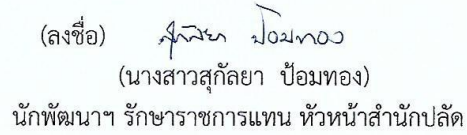 (ลงชื่อ) สุกัลยา ป้อมทอง
(นางสาวสุกัลยา ป้อมทอง)
นักพัฒนาฯ รักษาราชการแทน หัวหน้าสำนักปลัด